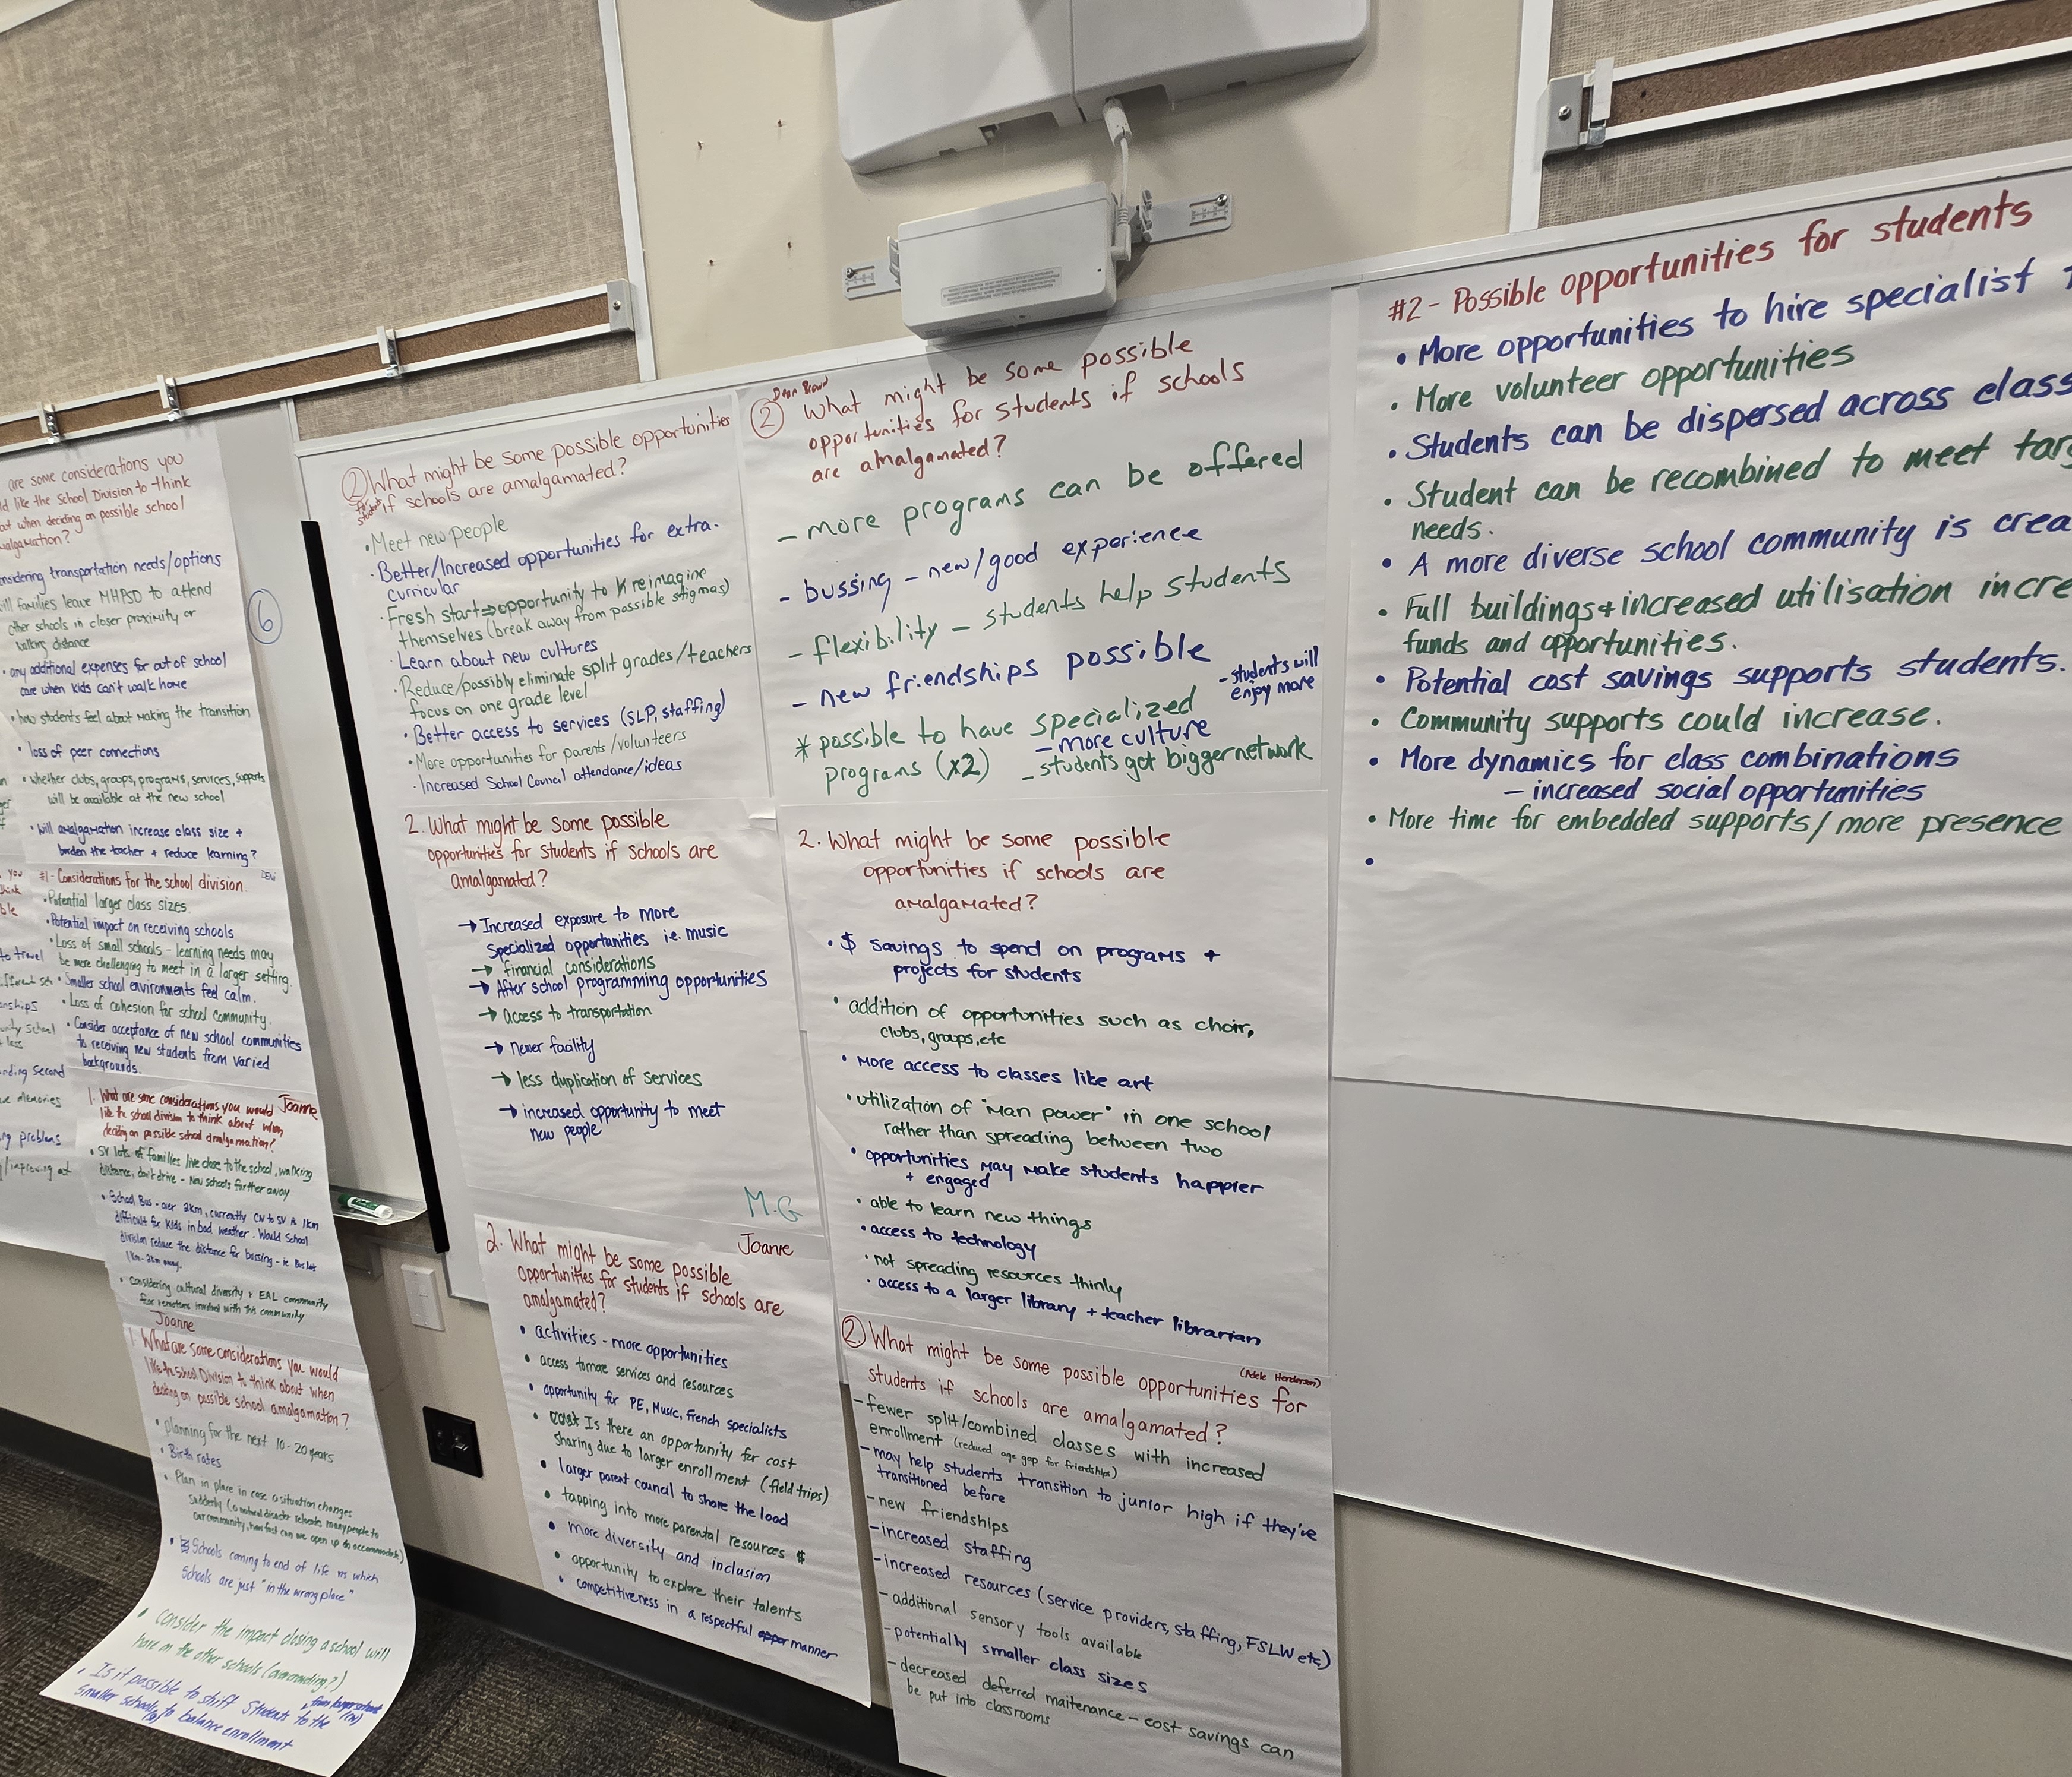 are some considerations you
like the School Division to think
when deciding on possible school
transportation needs/options
families leave MHPSD to attend
other schools in closer proximity or
walking distance
• any additional expenses for out of school
care when kids can't walk home
• how students feel about making the transition
• loss of peer connections
• whether clubs, groups, programs, services, supports
will be available at the new school
• will amalgamation increase class size +
burden the teacher + reduce learning?
6
#1 - Considerations for the school division.
• Potential larger class sizes.
• Potential impact on receiving schools
• Loss of small schools - learning needs may
be more challenging to meet in a larger setting.
• Smaller school environments feel calm.
• Loss of cohesion for school community.
• Consider acceptance of new school communities
to receiving new students from varied
backgrounds.
to travel
second
memories
problems
Joanne
1. What are some considerations you would
like the school division to think about when
deciding on possible school amalgamation?
• SV lots of families live close to the school, walking
distance, don't drive - New schools further away
• School Bus - over 2km, currently CW to SV is 1km
difficult for kids in bad weather. Would School
division reduce the distance for bussing - ie Bus
1km - 2km away.
• Considering cultural diversity + EAL community
involved with this community
Joanne
1. What are some considerations you would
like the School Division to think about when
deciding on possible school amalgamation?
• planning for the next 10-20 years
• Birth rates
• Plan in place in case a situation changes
suddenly (a natural disaster relocates many people to
our community, how fast can we open up to accommodate)
• Schools coming to end of life vs which
schools are just "in the wrong place"
• Consider the impact closing a school will
have on the other schools (overcrowding?)
• Is it possible to shift students to the
smaller schools to balance enrollment
2 What might be some possible opportunities
for student if schools are amalgamated?
• Meet new people
• Better/Increased opportunities for extra-
curricular
• Fresh start ⇒ opportunity to reimagine
themselves (break away from possible stigmas)
• Learn about new cultures
• Reduce/possibly eliminate split grades/teachers
focus on one grade level
• Better access to services (SLP, staffing)
• More opportunities for parents/volunteers
• Increased School Council attendance/ideas
2. What might be some possible
opportunities for students if schools are
amalgamated?
→ Increased exposure to more
specialized opportunities i.e. music
→ financial considerations
→ After school programming opportunities
→ access to transportation
→ newer facility
→ less duplication of services
→ increased opportunity to meet
new people
M.G
Joanne
2. What might be some possible
opportunities for students if schools are
amalgamated?
• activities - more opportunities
• access to more services and resources
• opportunity for PE, Music, French specialists
• Is there an opportunity for cost
sharing due to larger enrollment (field trips)
• larger parent council to share the load
• tapping into more parental resources $
• more diversity and inclusion
• opportunity to explore their talents
• competitiveness in a respectful manner
2 What might be some possible
opportunities for students if schools
are amalgamated?
- more programs can be offered
- bussing - new/good experience
- flexibility - students help students
- new friendships possible
- students will
enjoy more
* possible to have specialized
programs (x2)
- more culture
- students get bigger network
2. What might be some possible
opportunities if schools are
amalgamated?
• $ savings to spend on programs +
projects for students
• addition of opportunities such as choir,
clubs, groups, etc
• more access to classes like art
• utilization of "man power" in one school
rather than spreading between two
• opportunities may make students happier
+ engaged
• able to learn new things
• access to technology
• not spreading resources thinly
• access to a larger library + teacher librarian
(Adele Henderson)
2. What might be some possible opportunities for
students if schools are amalgamated?
- fewer split/combined classes with increased
enrollment (reduced age gap for friendships)
- may help students transition to junior high if they've
transitioned before
- new friendships
- increased staffing
- increased resources (service providers, staffing, FSLW etc)
- additional sensory tools available
- potentially smaller class sizes
- decreased deferred maitenance - cost savings can
be put into classrooms
#2 - Possible opportunities for students
• More opportunities to hire specialist
• More volunteer opportunities
• Students can be dispersed across class
• Student can be recombined to meet
needs.
• A more diverse school community is
• Full buildings + increased utilisation
funds and opportunities.
• Potential cost savings supports students.
• Community supports could increase.
• More dynamics for class combinations
- increased social opportunities
• More time for embedded supports/more presence